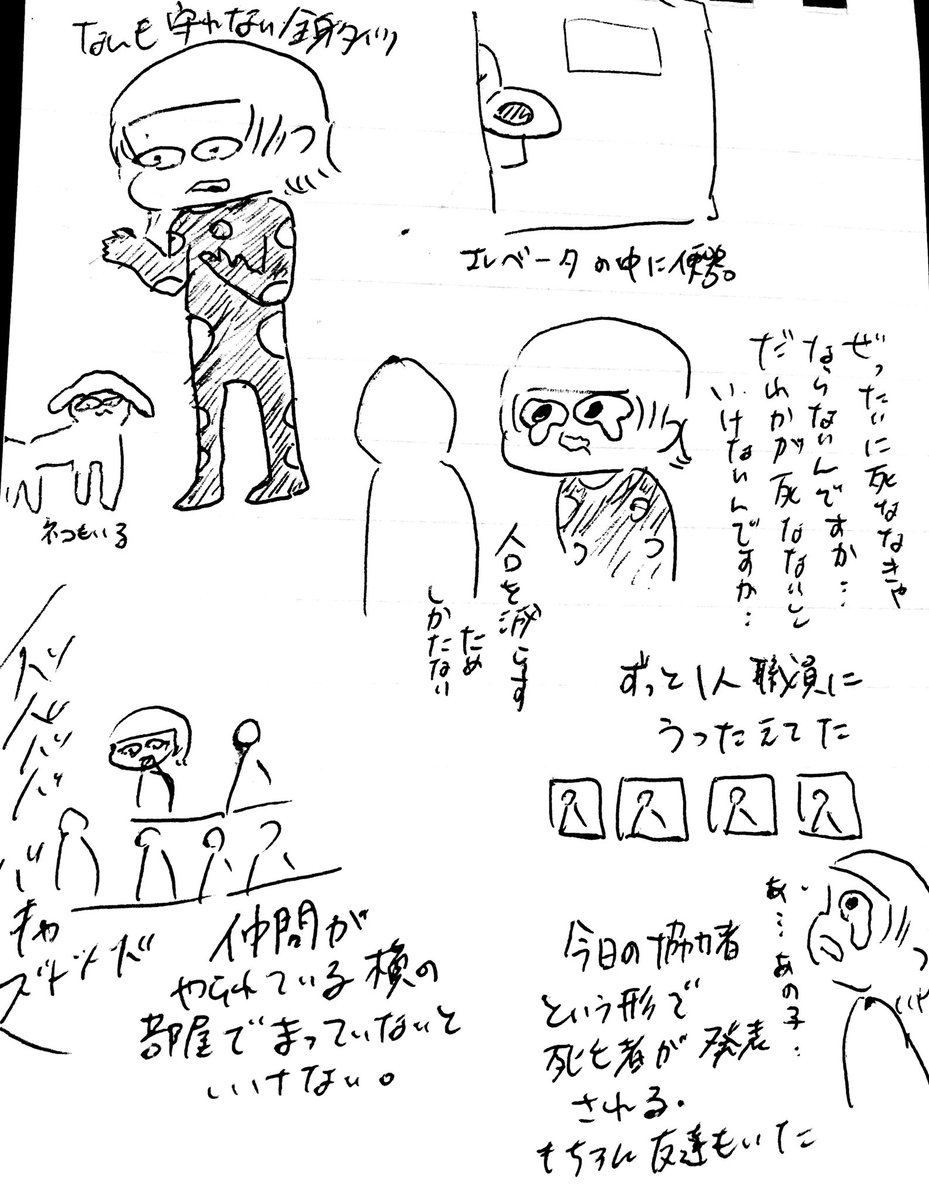 ないも守れない全身タイツ
エレベータの中に便器。
ネコもいる
ぜったいに死ななきゃ
ならないんですか…
だれかが死なないと
いけないんですか…
人口を減らす
ため
しかたない
ずっと1人職員に
うったえてた
仲間が
やられている横の
部屋でまっていないと
いけない。
あ…あの子…
今日の協力者
という形で
死亡者が発表
される。
もちろん友達もいた